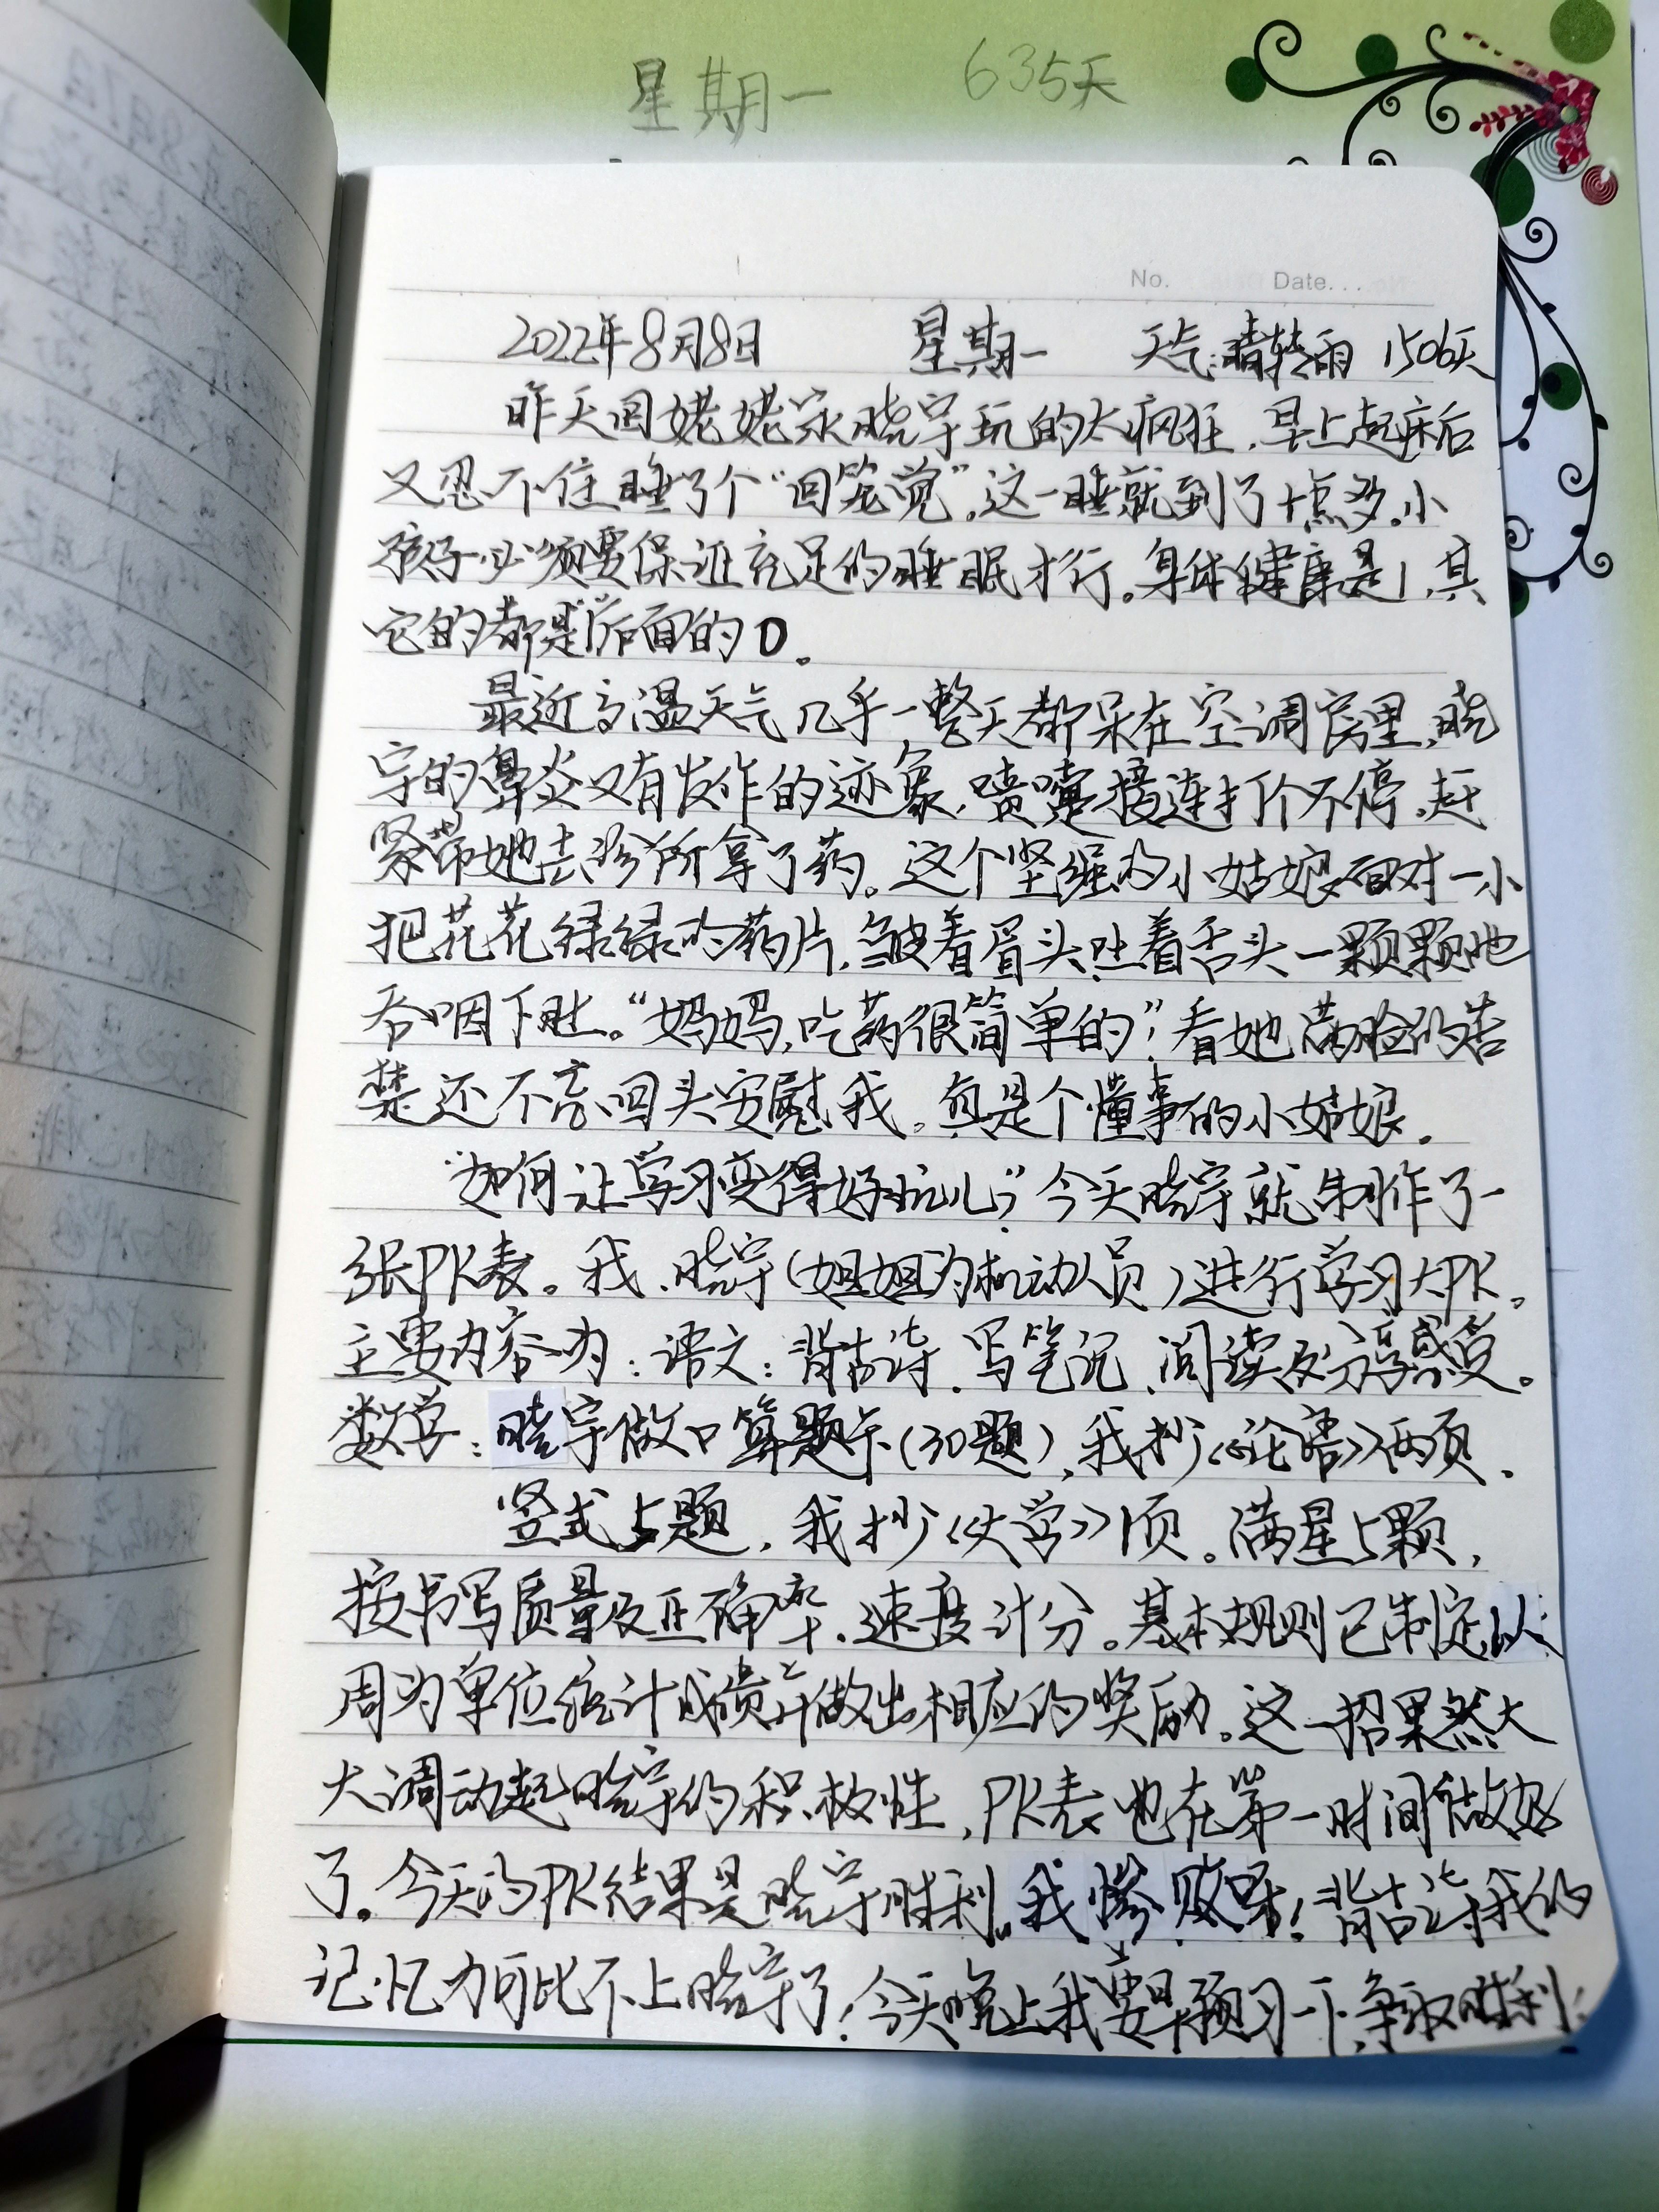 星期一 635天
No. Date....
2022年8月8日 星期一 天气:晴转雨 1506天
昨天回姥姥家晓宇玩的太疯狂,早上起床后
又忍不住睡了个“回笼觉”,这一睡就到了十点多。小
孩子必须要保证充足的睡眠才行。身体健康是1,其
它的都是1后面的0。
最近高温天气几乎一整天都呆在空调房里,晓
宇的鼻炎又有发作的迹象,喷嚏接连打个不停。赶
紧带她去诊所拿了药。这个坚强的小姑娘面对一小
把花花绿绿的药片,皱着眉头吐着舌头一颗颗地
吞咽下肚。“妈妈,吃药很简单的”!看她满脸的苦
楚还不忘回头安慰我。真是个懂事的小姑娘。
“如何让学习变得好玩儿”?今天晓宇就制作了一
张PK表。我、晓宇(姐姐为机动人员)进行学习大PK。
主要内容为:语文:背古诗、写笔记、阅读及分享感受。
数学:晓宇做口算题卡(30题),我抄《论语》两页。
竖式5题,我抄《大学》1页。满星5颗,
按书写质量及正确率、速度计分。基本规则已制定,以
周为单位统计成绩并做出相应的奖励。这一招果然大
大调动起晓宇的积极性,PK表也在第一时间做好
了。今天的PK结果是晓宇胜利。我惨败呀!背古诗我的
记忆力可比不上晓宇了!今天晚上我要早预习一下,争取胜利!